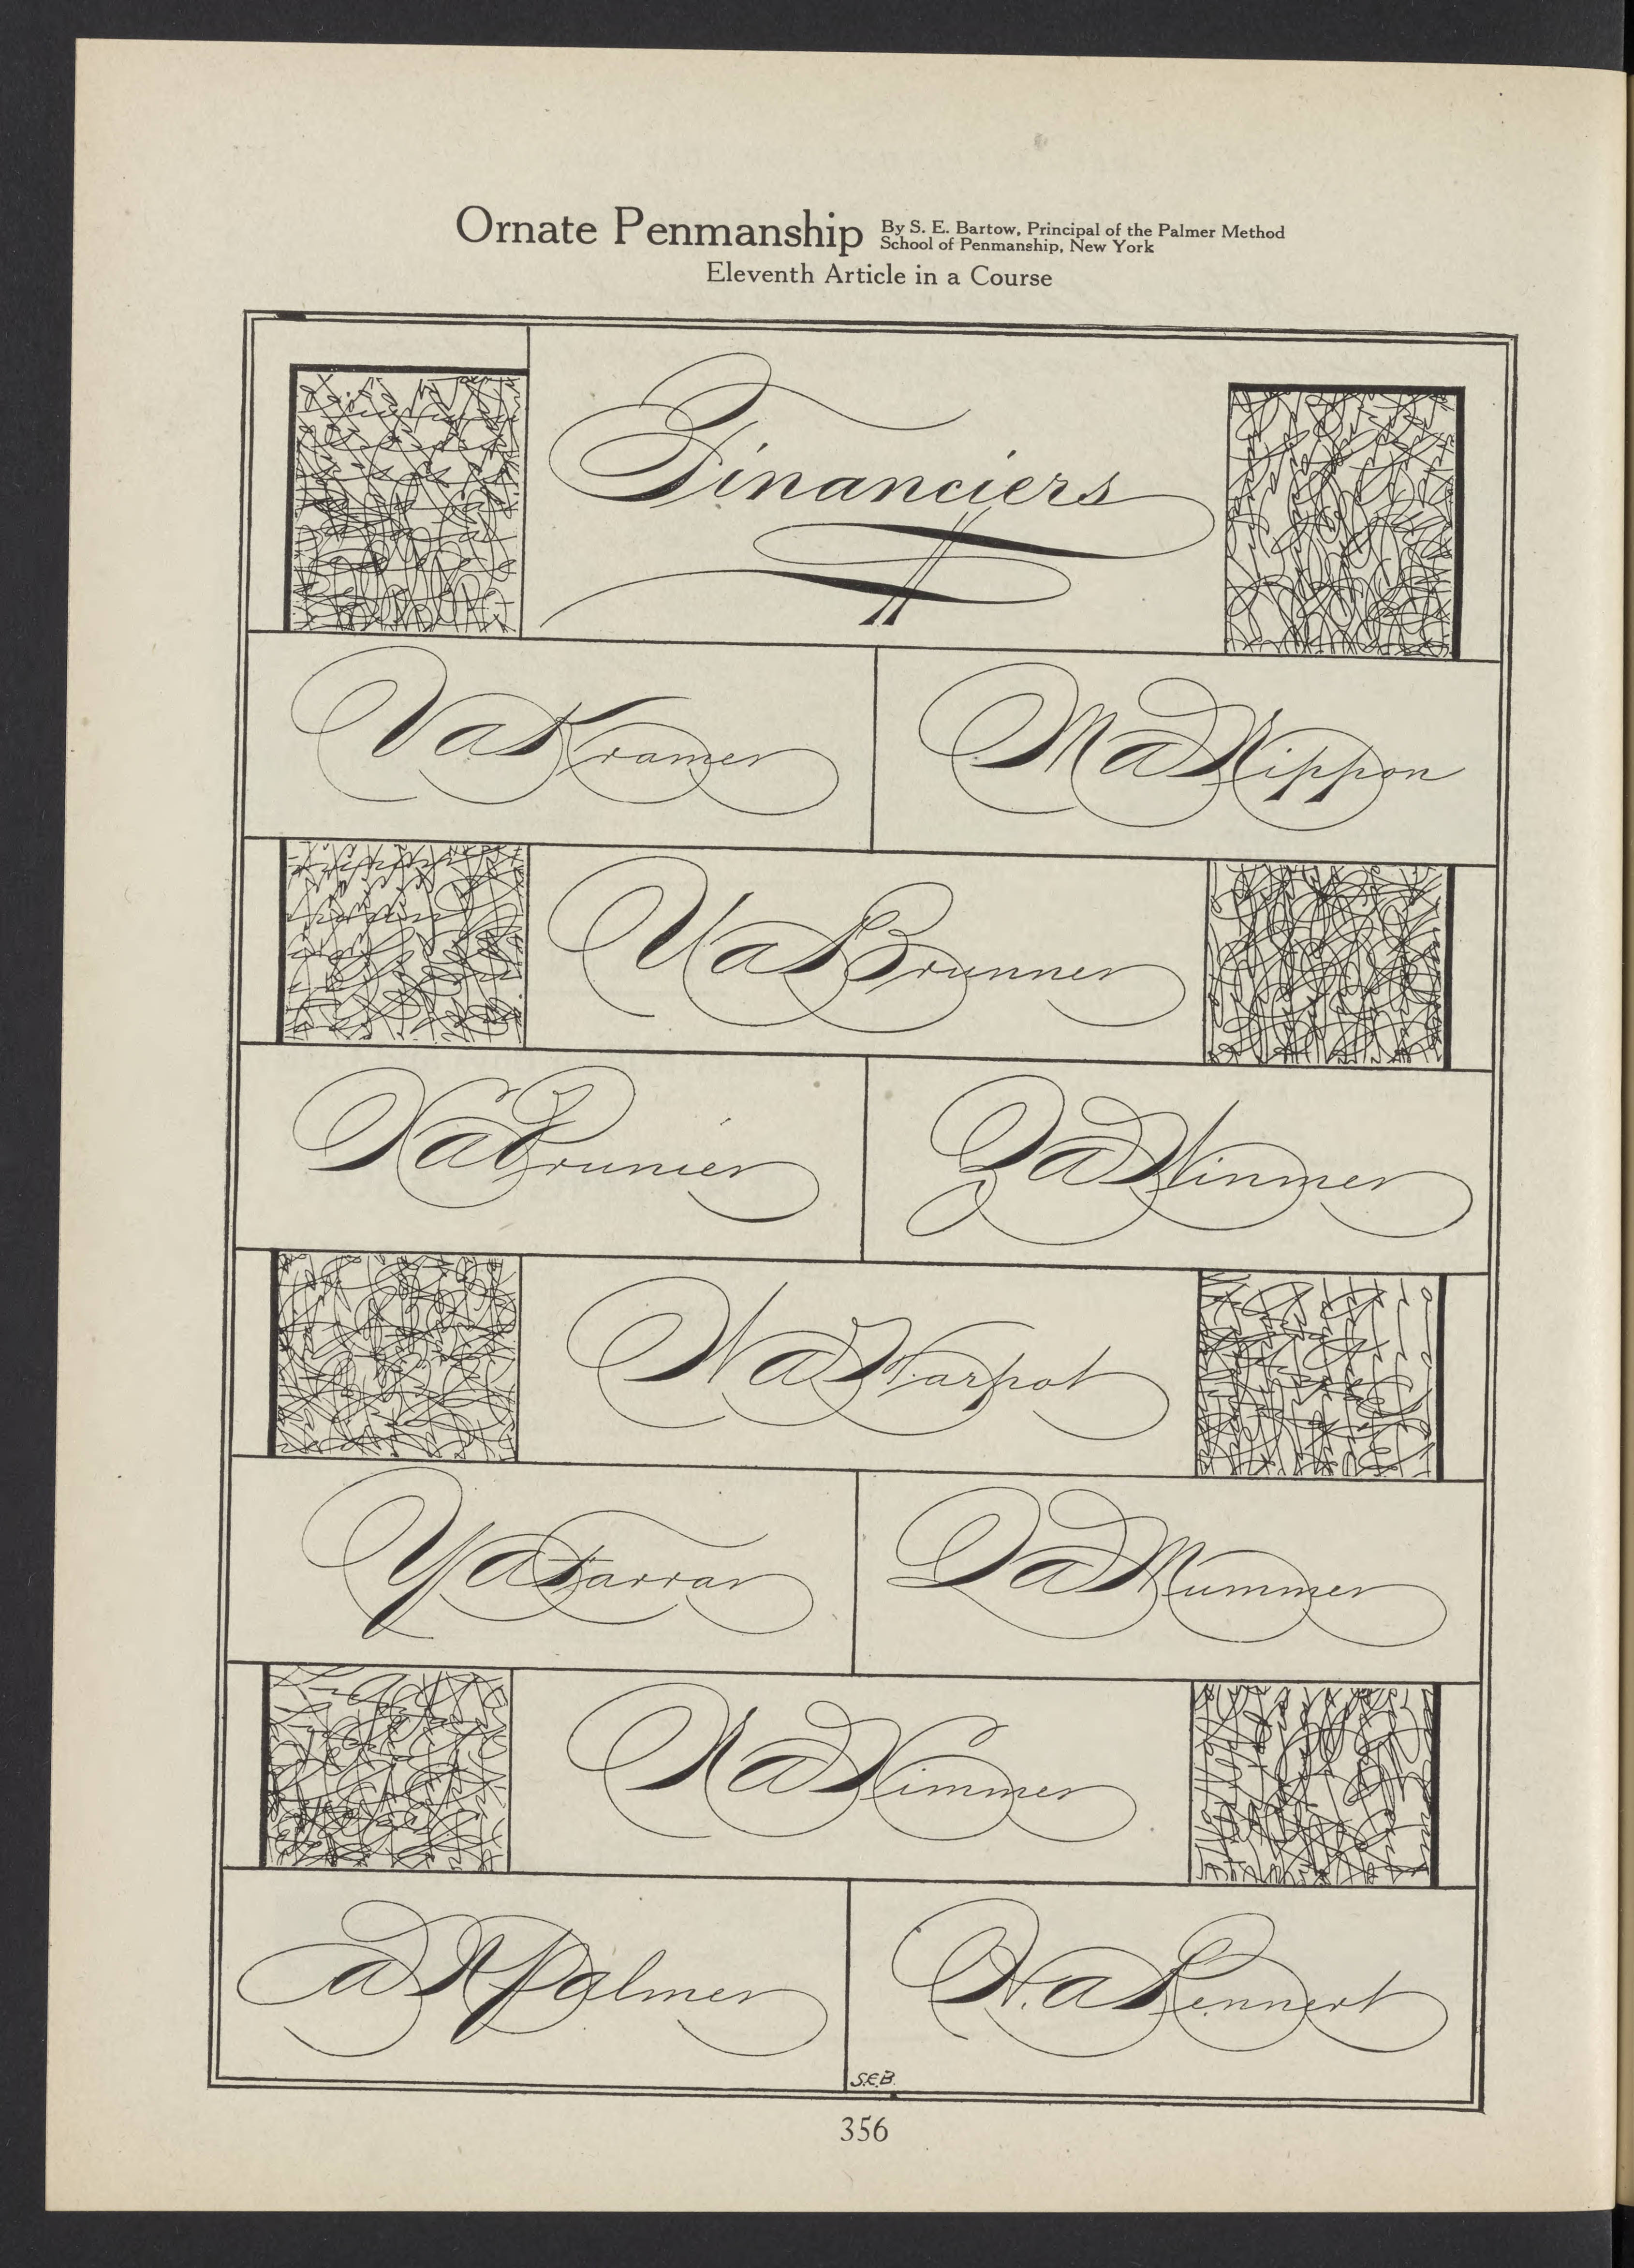 Ornate Penmanship
By S. E. Bartow, Principal of the Palmer Method
School of Penmanship, New York
Eleventh Article in a Course
Financiers
Va Kramer
Ma Nippon
Ua Brunner
Xa Prunier
Za Winmer
Wa Harpot
Ya Farrar
Qa Mummer
Na Ximmer
A N Palmer
H. a Pennert
S.E.B.
356